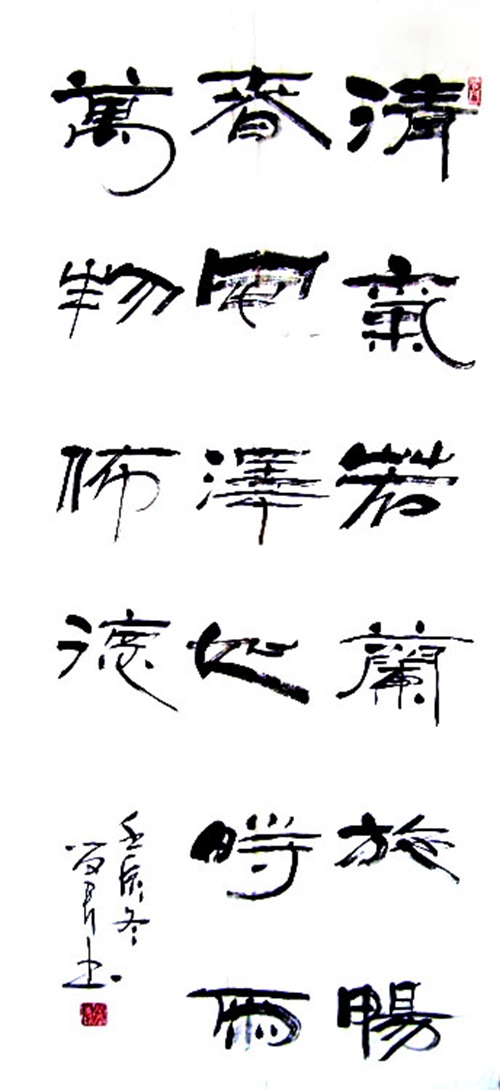 清氣若蘭於暢
春風澤時雨
萬物佈德
壬辰冬
書